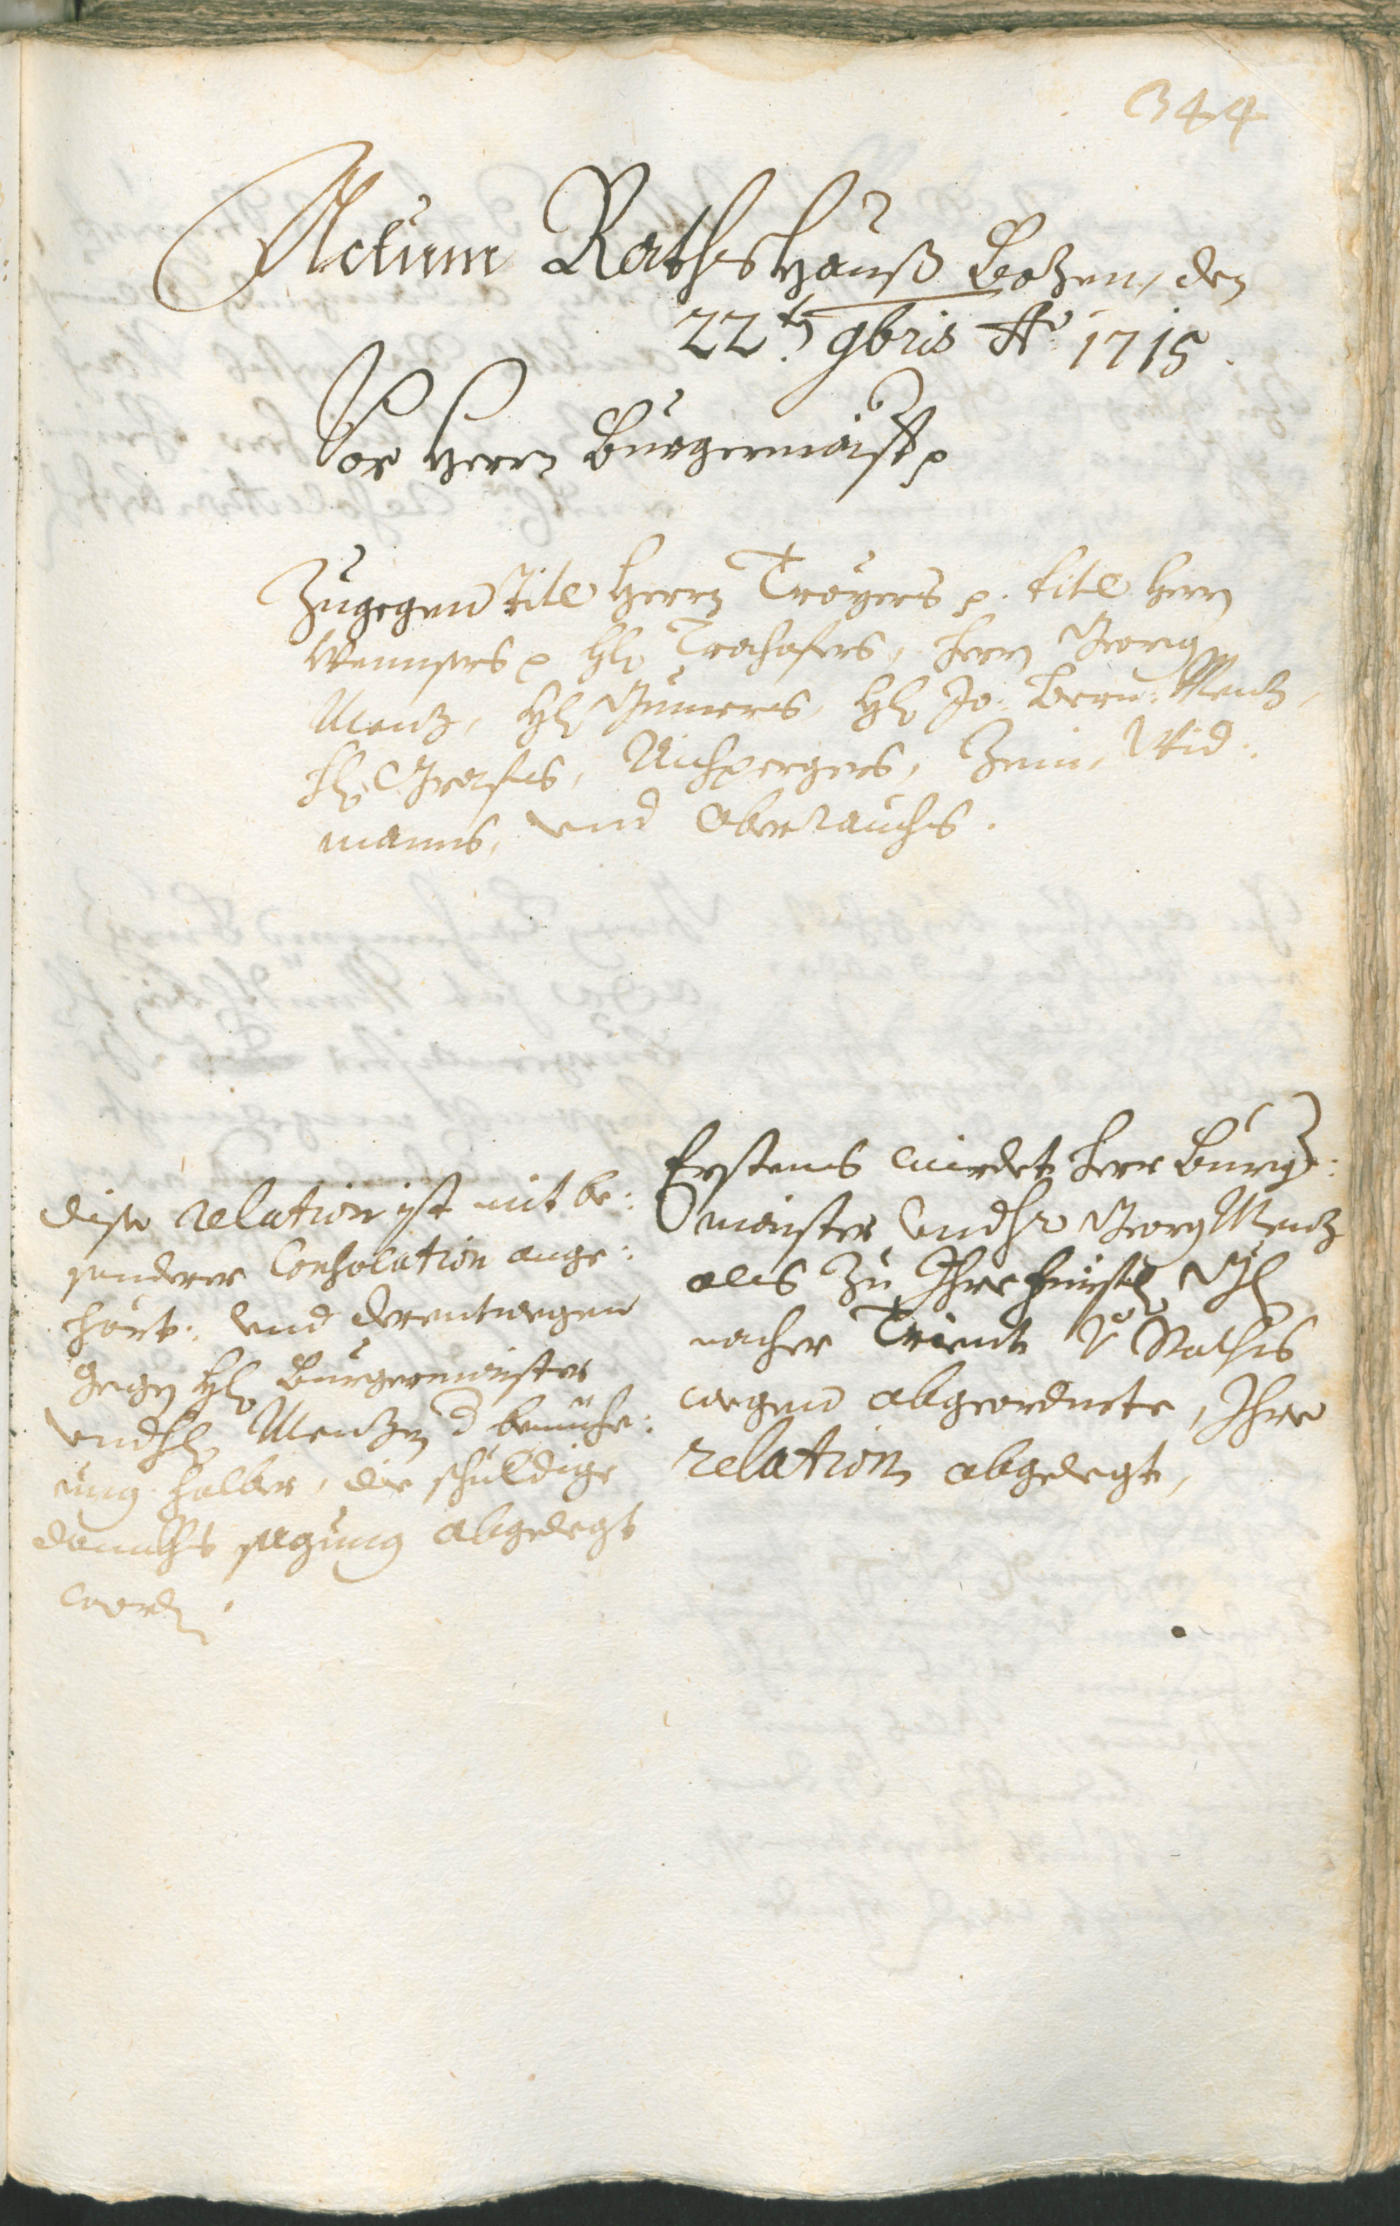 344
Actum Rathshauß Bozen, den
22ten 9bris Ao 1715.
Vor Herrn Burgermaister
Zugegen titl Herrn Troyers p. titl Herrn
Wensers p Hl: Trochofers, Herrn Georg
Menz, Hl: Gumers, Hl: Jo: Bern: Menz,
Hl: Grafns, Aichpergers, Zein, Wid:
manns, und Oberrauchs.
Erstens wirdet Herr Burger:
maister und Hr Georg Menz
als zu Ihro Fürstl:
nacher Trient Raths
wegen abgeordnete, Ihre
relation abgelegt,
dise relation ist mit be:
sonderer Consolation ange:
hört: und derentwegen
gegen Hl: Burgermaister
und Hl: Menzen d bemüehe:
ung halber, die schuldige
danckhsagung abgelegt
worden.